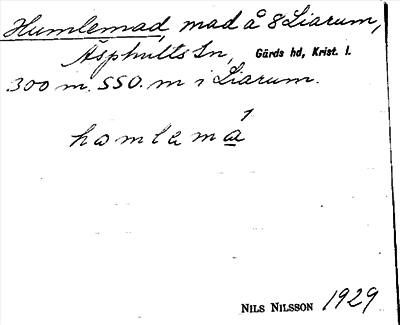 Humlemad, mad å 8 Liarum,
Äsphults sn, Gärds hd, Krist. l.
300 m. SSO. m i Liarum.
1
homlama
NILS NILSSON 1929